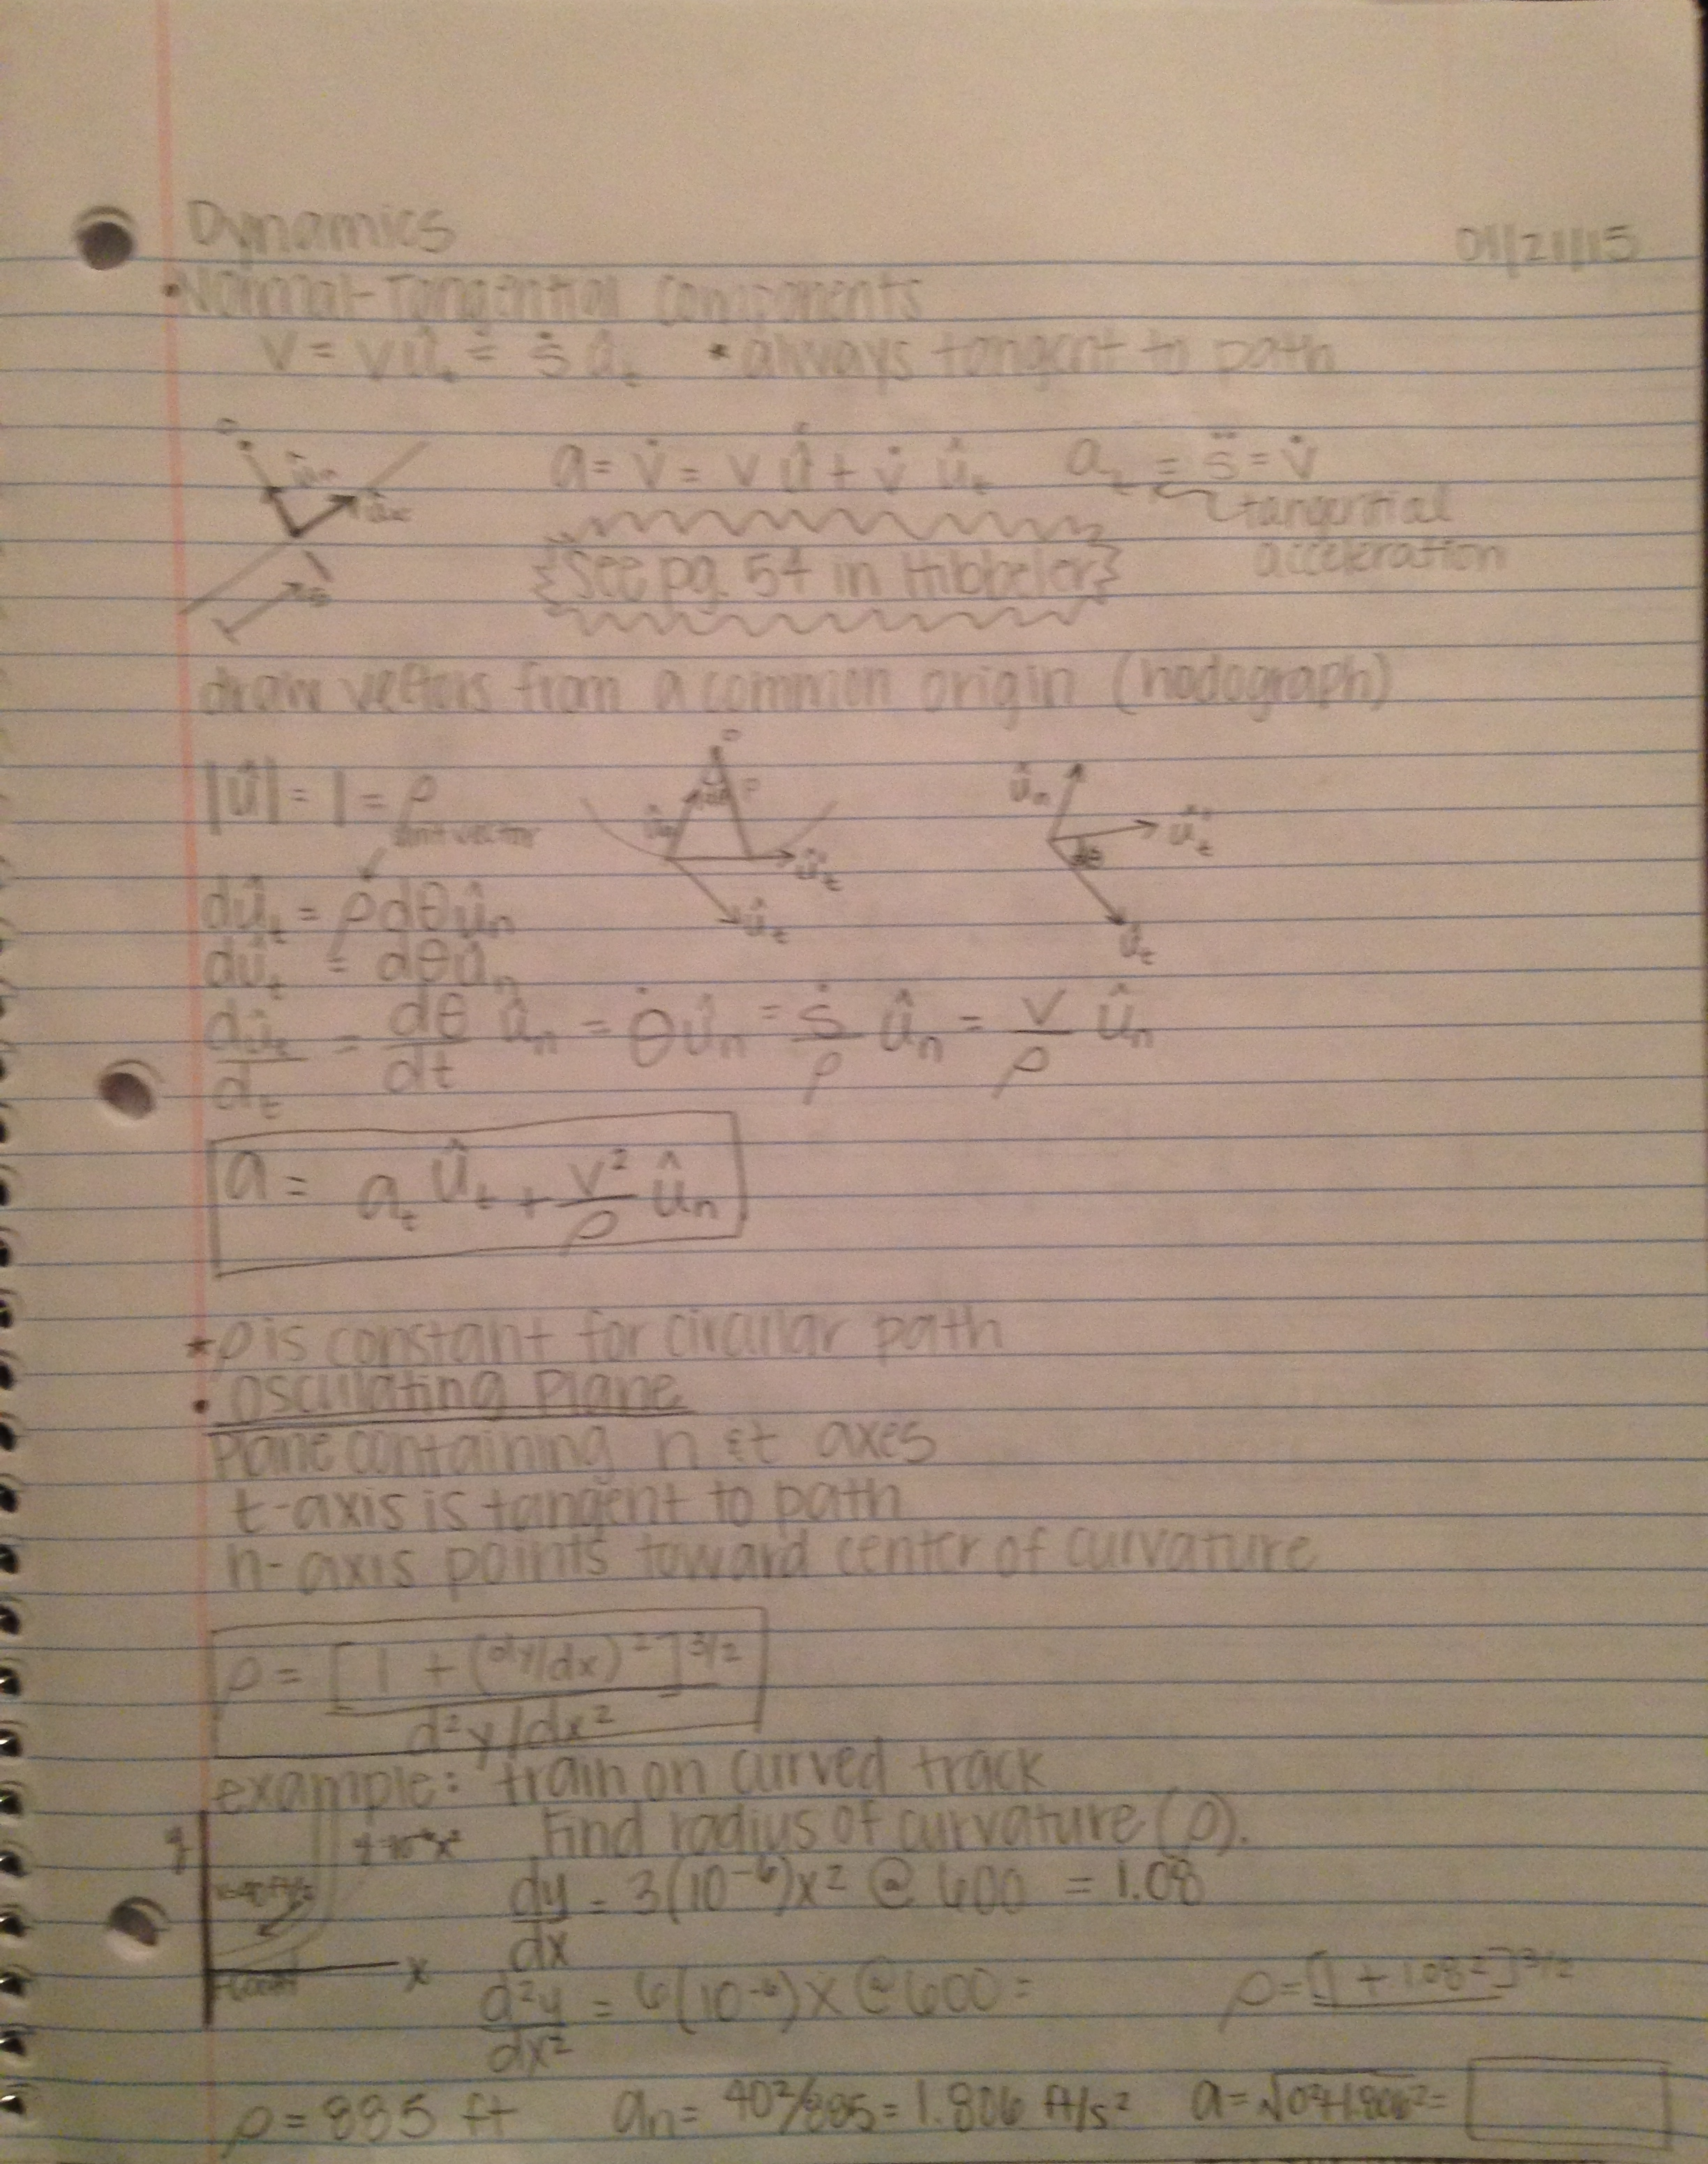 Dynamics
01/21/15
• Normal-Tangential Components
v = v û_t = ṡ û_t * always tangent to path
û_n
a = v̇ = v û̇ + v̇ û_t a_t = s̈ = v̇
tangential
acceleration
s
See pg. 54 in Hibbeler
draw vectors from a common origin (hodograph)
|û| = 1 = ρ
unit vector
dθ ρ û_n û'_t û_t
û_n û'_t dθ û_t
dû_t = ρdθû_n
dû_t = dθû_n
dû_t/dt = dθ/dt û_n = θ̇û_n = ṡ/ρ û_n = v/ρ û_n
a = a_t û_t + v²/ρ û_n
* ρ is constant for circular path
• Osculating Plane
Plane containing n & t axes
t-axis is tangent to path
n-axis points toward center of curvature
ρ = [1 + (dy/dx)²]^3/2 / d²y/dx²
example: train on curved track
Find radius of curvature (ρ).
y
x
dy/dx = 3(10⁻⁶)x² @ 600 = 1.08
d²y/dx² = 6(10⁻⁶)x @ 600 =
ρ = [1 + 1.08²]^3/2
ρ = 885 ft a_n = 40²/885 = 1.806 ft/s² a = √0²+1.806² =